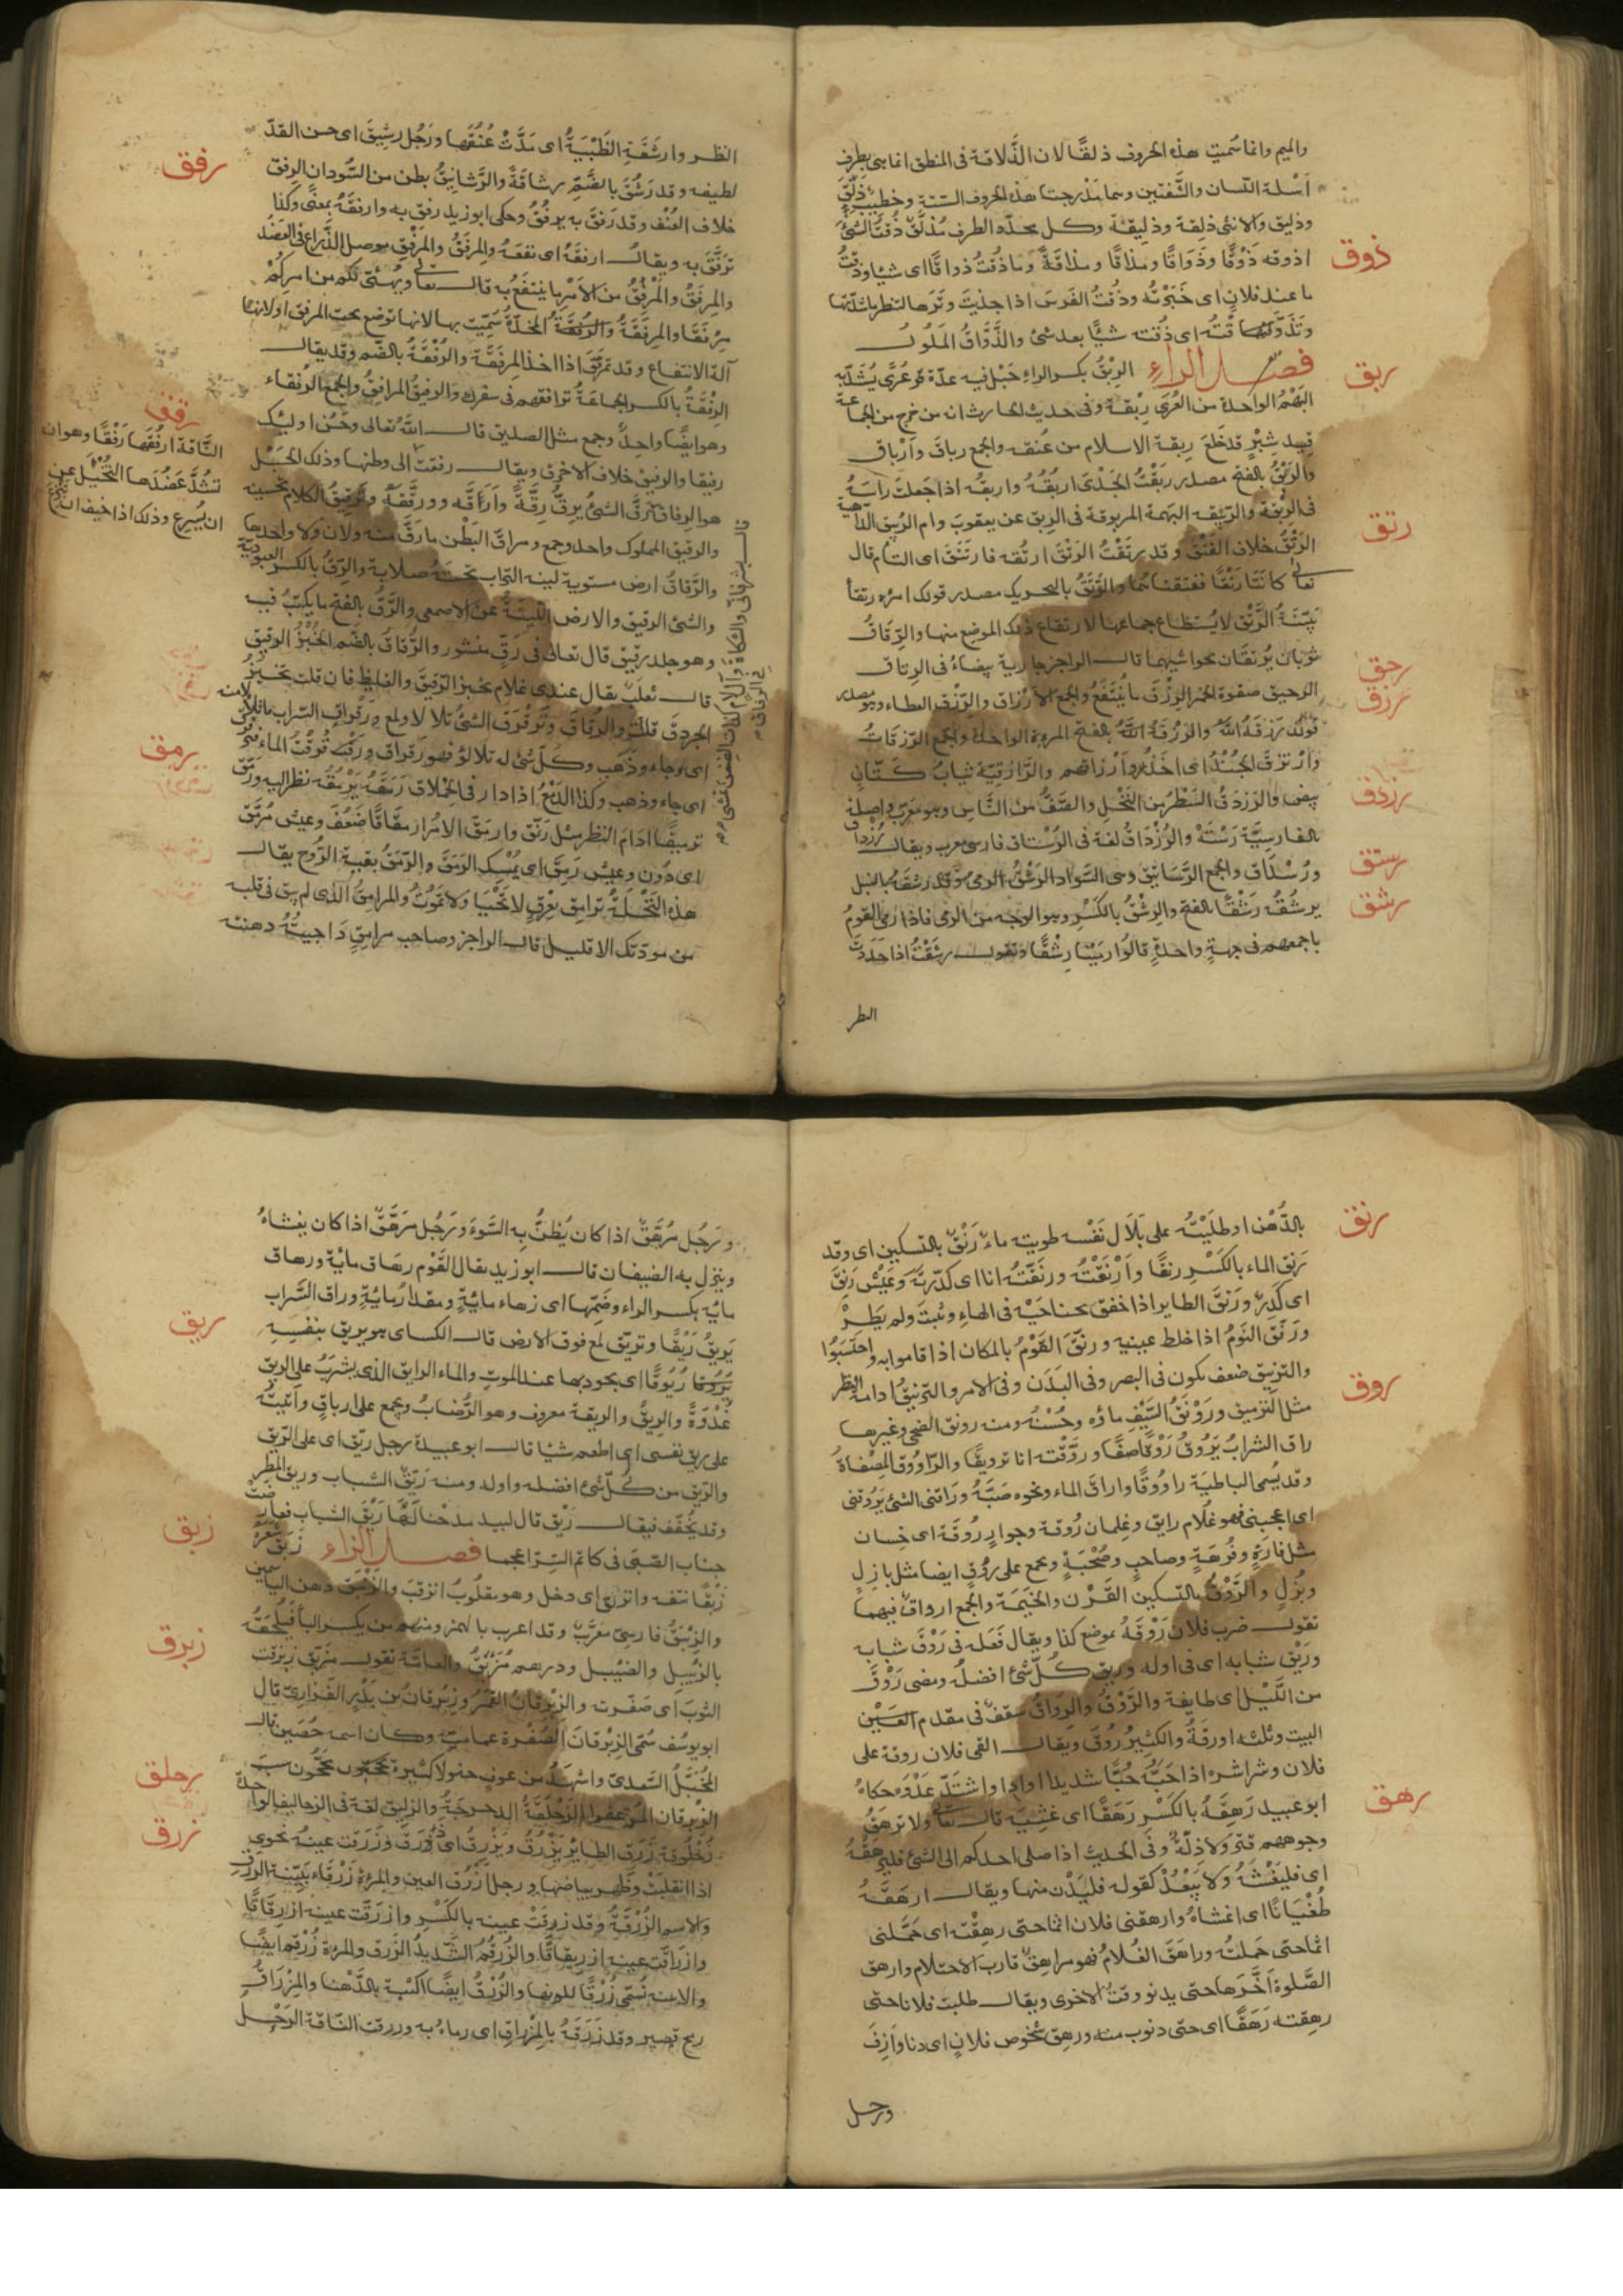 والميم وانما سميت هذه الحروف ذلقا لان الذلاقة فى المنطق انما هى بطرف
اسلة اللسان والشفتين وهما مدرجتا هذه الحروف الستة وخطيب ذلق
وذليق والانثى ذلقة وذليقة وكل محدد الطرف مذلق ذقت الشئ
ذوق
اذوقه ذوقا وذواقا ومذاقا ومذاقة وما ذقت ذواقا اى شيئا وذقت
ما عند فلان اى خبرته وذقت القوس اذا جذبت وترها لتنظر ما شدتها
وتذوقته اى ذقته شيئا بعد شئ والذواق الملول
ربق
فصل الراء الربق بكسر الراء حبل فيه عدة عرى يشد به
البهم الواحدة من العرى ربقة وفى حديث الحارث ان من خرج من الجماعة
قيد شبر فقد خلع ربقة الاسلام من عنقه والجمع رباق وارباق
والربق بالفتح مصدر ربقت الجدى اربقه واربقه اذا جعلت راسه
فى الربقة والربيقة البهمة المربوقة فى الربق عن يعقوب وام الربيق الداهية
رتق
الرتق خلاف الفتق وقد رتقت الرتق ارتقه فارتتق اى التأم قال
تعالى كانتا رتقا ففتقناهما والرتق بالتحريك مصدر قولك امرءة رتقا
بينة الرتق لا يستطاع جماعها لارتقاع ذلك الموضع منها والرتاق
ثوبان يرتقان بحواشيهما قال الراجز جارية بيضاء فى الرتاق
رحق
رزق
الرحيق صفوة الخمر الرزق ما ينتفع والجمع الارزاق والرزق العطاء وهو مصدر
قولك رزقه الله والرزقة بالفتح المرءة الواحدة والجمع الرزقات
وارتزق الجند اى اخذوا ارزاقهم والرازقية ثياب كتان
رزدق
بيض والرزدق السطر من النخل والصف من الناس وهو معرب واصله
بالفارسية رسته والرزداق لغة فى الرستاق فارسى معرب ويقال رزداق
رستق
ورستاق والجمع الرساتيق وهى السواد الرشق الرمى وقد رشقه بالنبل
رشق
يرشقه رشقا بالفتح والرشق بالكسر وهو الوجه من الرمى فاذا رمى القوم
باجمعهم فى جهة واحدة قالوا رمينا رشقا وتقول رشقت اذا حددت
النظر
النظر وارشقت الظبية اى مدت عنقها ورجل رشيق اى حسن القد
رفق
لطيفه وقد رشق بالضم رشاقة والرشانيق بطن من السودان الرفق
خلاف العنف وقد رفق به يرفق وحكى ابو زيد رفق به وارفقه بمعنى وكذا
ترفق به ويقال ارفقه اى نفعه والمرفق والمرفق موصل الذراع فى العضد
والمرفق والمرفق من الامر ما ينتفع به قال تعالى ويهيئ لكم من امركم
مرفقا والمرفقة المخدة سميت بها لانها توضع تحت المرفق او لانها
آلة الانتفاع وقد تمرفق اذا اخذ المرفقة والرفقة بالضم وقد يقال
الرفقة بالكسر الجماعة ترافقهم فى سفرك والرفيق المرافق والجمع الرفقاء
وهو ايضا واحد وجمع مثل الصديق قال الله تعالى وحسن اوليك
رفيقا والرفيق خلاف الاخرق ويقال رفقت
الناقة ارفقها رفقا وهو ان
تشد عضدها
ان تسرع وذلك اذا خيف
والرقيق المملوك واحد وجمع ومراق البطن ما رق منه ولان ولا واحد لها
والرقاق ارض مستوية لينة التراب تحته صلابة والرق بالكسر العبودية
والشئ الرقيق والارض اللينة عن الاصمعى والرق بالفتح ما يكتب فيه
وهو جلد رقيق قال تعالى فى رق منشور والرقاق بالضم الخبز الرقيق
قال ثعلب يقال عندى غلام يخبز الرقيق والغليظ فان قلت يخبز
اى جاء وذهب وكل شئ له تلالؤ فهو رقراق
رمق
اى جاء وذهب وكذا الدمع اذا دار فى الحملاق رمقه يرمقه نظر اليه ورمق
ترميقا ادام النظر مثل رنق وارمق الامر ارمقاقا ضعف وعيش مرمق
اى دون وعيش رمق اى يمسك الرمق والرمق بقية الروح يقال
هذه النخلة ترامق بعرق لا تحيا ولا تموت والمرامق الذى لم يبق فى قلبه
من مودتك الا قليل قال الراجز وصاحب مرامق داجيته دهنته
رنق
بالدهن او طليته على بلال نفسه طويته ماء رنق بالتسكين اى وقد
رنق الماء بالكسر رنقا وارنقته ورنقته انا اى كدرته وعيش رنق
اى كدر ورنق الطاير اذا خفق بجناحيه فى الهواء وثبت ولم يطر
ورنق النوم اذا خلط عينيه ورنق القوم بالمكان اذا قاموا به واحتبسوا
والترنيق ضعف يكون فى البصر وفى البدن وفى الامر والترنيق ادامة النظر
روق
مثل الترميق ورونق السيف ماؤه وحسنه ومنه رونق الضحى وغيرها
راق الشراب يروق روقا صفا وروقته انا ترويقا والراووق المصفاة
وقد يسمى الباطية راووقا واراق الماء ونحوه صبه وراقنى الشئ يروقنى
اى اعجبنى فهو غلام رايق وغلمان روقة وجوار روقة اى حسان
مثل فاره وفرهة وصاحب وصحبة ويجمع على روق ايضا مثل بازل
وبزل والروق بالتسكين القرن والخيمة والجمع ارواق فيهما
تقول ضرب فلان روقه بموضع كذا ويقال فعله فى روق شبابه
وريق شبابه اى فى اوله وريق كل شئ افضله ومضى روق
من الليل اى طايفة والروق والرواق سقف فى مقدم
البيت وثلثه اروقة والكثير روق ويقال القى فلان روقه على
فلان وشراشره اذا حبه حبا شديدا
رهق
ابو عبيد رهقه بالكسر رهقا اى غشيه قال تعالى ولا يرهق
وجوههم قتر ولا ذلة وفى الحديث اذا صلى احدكم الى الشئ فليرهقه
اى فليغشه ولا يبعد كقوله فليدن منها ويقال ارهقه
طغيانا اى اغشاه وارهقنى فلان اثما حتى رهقته اى حملنى
اثما حتى حملته وراهق الغلام فهو مراهق قارب الاحتلام وارهق
الصلوة اخرها حتى يدنو وقت الاخرى ويقال طلبت فلانا حتى
رهقته رهقا اى حتى دنوت منه ورهق شخوص فلان اى دنا وازف
ورجل
ورجل مرهق اذا كان يظن به السوء ورجل مرهق اذا كان يغشاه
وينزل به الضيفان قال ابو زيد يقال القوم رهاق ماية ورهاق
ماية بكسر الراء وضمها اى زهاء ماية ومقدار ماية وراق الشراب
ريق
يريق ريقا وتريق لمع فوق الارض قال الكساى هو يريق بنفسه
ريوقا اى يجود بها عند الموت والماء الرايق الذى يشرب على الريق
غدوة والريق والريقة معروف وهو الرضاب ويجمع على ارياق واتيته
على ريق نفسى اى اطعم شيئا قال ابو عبيدة رجل ريق اى على الريق
والريق من كل شئ افضله واوله ومنه ريق الشباب وريق المطر
وقد يخفف فيقال ريق قال لبيد مدحنا لها ريق الشباب فعارضت
زبق
جناب الصبى فى كاتم السر اعجما فصل الزاء زبق شعره
زبقا نتفه وانزبق اى دخل وهو مقلوب انزقب والزنبق دهن الياسمين
والزئبق فارسى معرب وقد اعرب بالهمز ومنهم من يكسر الباء فيلحقه
زبرق
بالزئبر والضئبل ودرهم مزأبق والعامة تقول مزبق زبرقت
الثوب اى صفرته والزبرقان القمر وزبرقان بن بدر الفزارى قال
ابو يوسف سمى الزبرقان لصفرة عمامته وكان اسمه حصين قال
المخبل السعدى واشهد من عوف حلولا كثيرة يحجون سب
زحلق
الزبرقان المزعفرا الزحلقة الدحرجة والزحاليق لغة فى الزحاليف الواحدة
زرق
زحلوقة زرق الطاير يزرق ويزرق اى ذرق وزرقت عينه نحوى
اذا انقلبت وظهر بياضها ورجل ازرق العين والمرءة زرقاء بينة الزرق
والاسم الزرقة وقد زرقت عينه بالكسر وازرقت عينه ازرقاقا
وازراقت عينه ازريقاقا والزرقم الشديد الزرق والمرءة زرقم ايضا
والاسنة تسمى زرقا للونها والزرق ايضا اكثبة بالدهنا والمزراق
رمح قصير وقد زرقه بالمزراق اى رماه به وزرقت الناقة الرحل